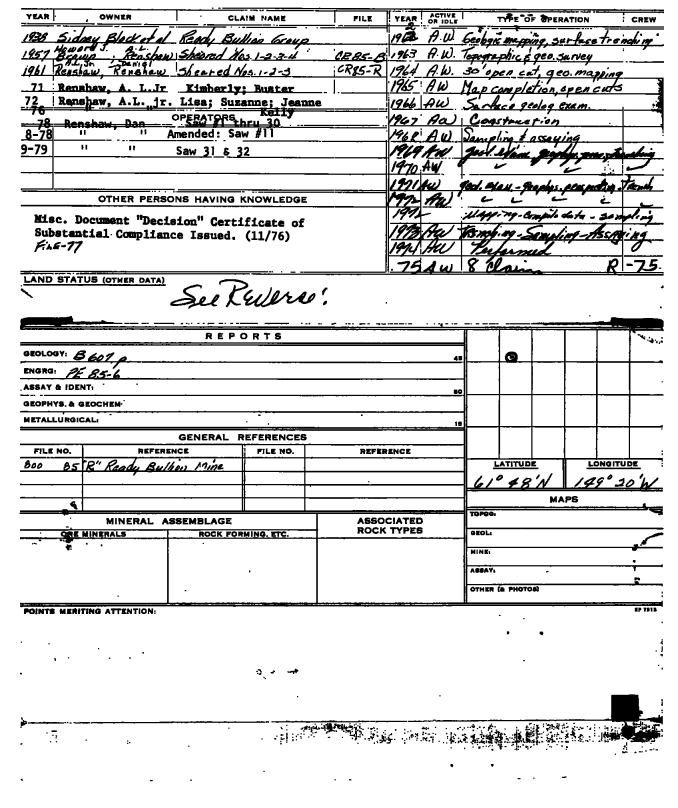 YEAR OWNER CLAIM NAME FILE
1938 Sidney Block et al Ready Bullion Group
1957 Howard J. Braun, A.L. Renshaw Sheared Nos. 1-2-3-4 CR85-B
1961 A.L. Jr. Daniel Renshaw, Renshaw Sheared Nos. 1-2-3 CR85-R
71 Renshaw, A. L.Jr Kimberly; Buster
72 Renshaw, A.L. jr. Lisa; Suzanne; Jeanne
76 " Kelly
OPERATORS
78 Renshaw, Dan Saw #1 thru 30
8-78 " " Amended: Saw #11
9-79 " " Saw 31 & 32
OTHER PERSONS HAVING KNOWLEDGE
Misc. Document "Decision" Certificate of
Substantial Compliance Issued. (11/76)
File-77
YEAR ACTIVE OR IDLE TYPE OF OPERATION CREW
1962 A.W. Geologic mapping, surface trenching
1963 A.W. Topographic & geo. survey
1964 A.W. 30' open cut, geo. mapping
1965 AW Map completion, open cuts
1966 AW Surface geolog exam.
1967 AW Construction
1968 AW Sampling & assaying
1969 AW
1970 AW
1971 AW
1972 AW
1972 Mapping-Compile data-sampling
1973 AW Trenching-Sampling-Assaying
1974 AW Performed
75 AW 8 Claims R-75
LAND STATUS (OTHER DATA)
See Reverse!
REPORTS
GEOLOGY: B 607 p 45
ENGRG: PE 85-6
ASSAY & IDENT:
GEOPHYS. & GEOCHEM:
METALLURGICAL: 15
GENERAL REFERENCES
FILE NO. REFERENCE FILE NO. REFERENCE
800 85 "R" Ready Bullion Mine
LATITUDE LONGITUDE
61° 48'N 149° 20'W
MAPS
TOPOG:
GEOL:
MINE:
ASSAY:
OTHER (& PHOTOS)
MINERAL ASSEMBLAGE
ORE MINERALS ROCK FORMING, ETC.
ASSOCIATED ROCK TYPES
POINTS MERITING ATTENTION: